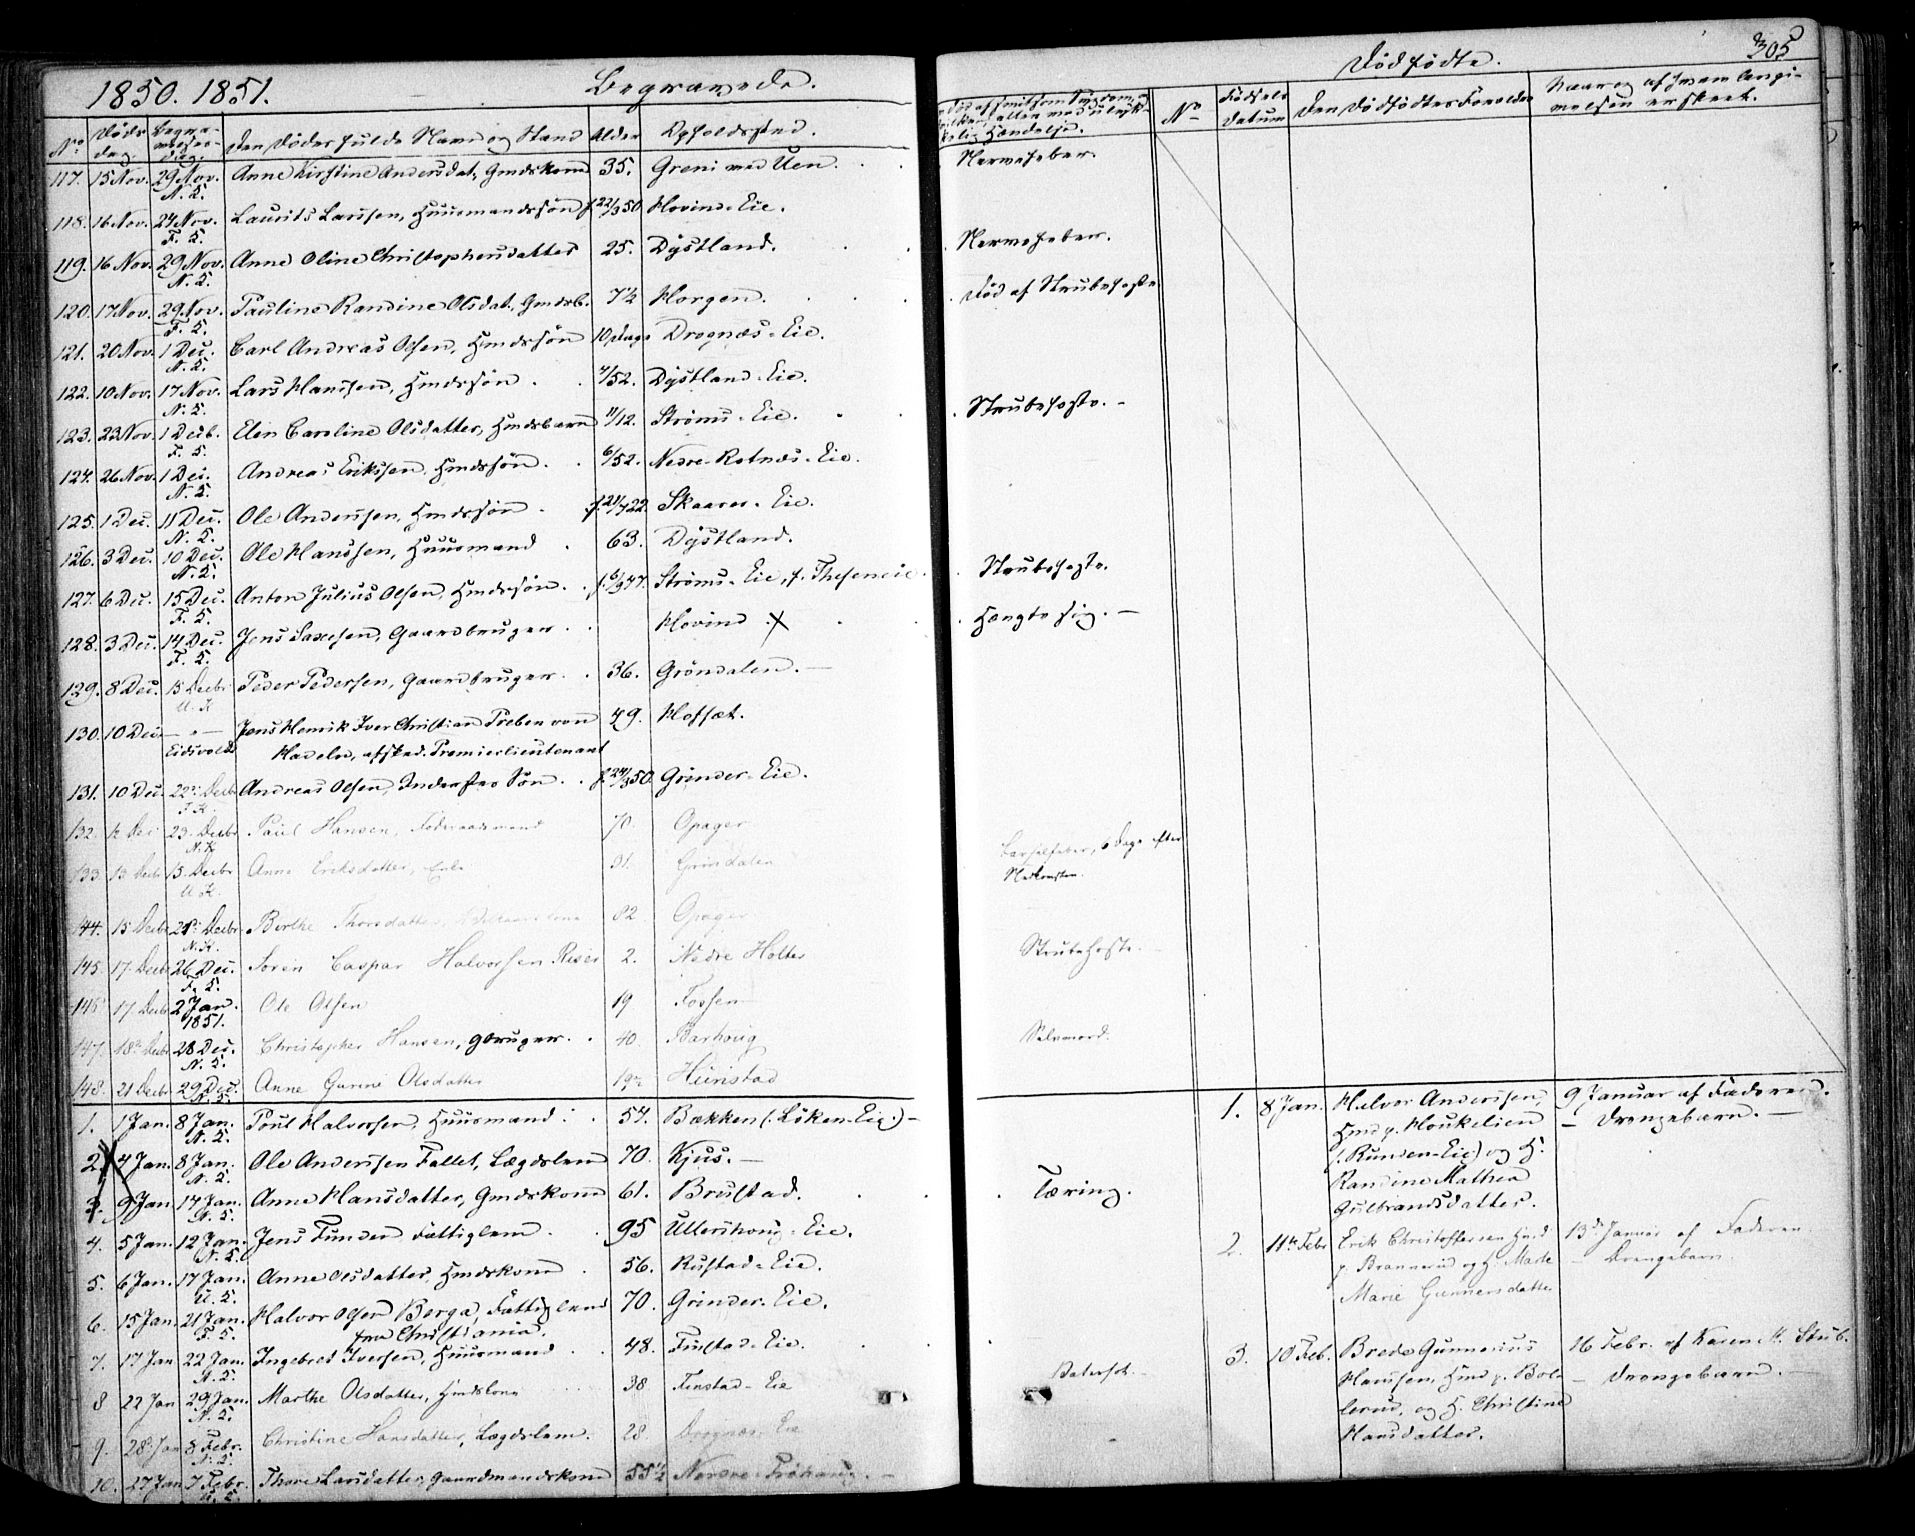 1850. 1851.
Begravede.
No
Døds dag.
Begravelses-dag.
Den Dødes fulde Navn og Stand
Alder
Opholdssted.
117. 15 Nov. 29 Nov. N. K. Anne Kirstine Andersdat. Gmdskone 35. Greni med Uen
118. 16 Nov. 24 Nov. F. K. Laurits Larssen, Huusmandssøn f. 22/3 50 Hovind-Eie.
119. 16 Nov. 29 Nov. N. K. Anne Oline Christophersdatter 25. Dystland.
120. 17 Nov. 29 Nov. F. K. Pauline Randine Olsdat. Gmdsb. 7½ Horgen.
121. 20 Nov. 1 Dec. N. K. Carl Andreas Olsen, Hmdssøn 10 Dage Drognæs-Eie.
122. 10 Nov. 17 Nov. N. K. Lars Hanssen, Hmdssøn. 4/52. Dystland-Eie.
123. 23 Nov. 1 Decb. F. K. Elen Caroline Olsdatter, Hmdsbarn 11/12. Strøms-Eie.
124. 26 Nov. 1 Dec. N. K. Andreas Erikssen, Hmdssøn. 6/52. Nedre-Rotnæs-Eie.
125. 1 Dec. 11 Dec. N. K. Ole Anderssen, Hmdssøn f. 21/7 22. Skaarer-Eie.
126. 3 Dec. 10 Dec. N. K. Ole Hanssen, Huusmand 63. Dystland.
127. 6 Dec. 15 Dec. F. K. Anton Julius Olsen, Hmdssøn. f. 6/9 47. Strøms-Eie, f. Theseneie
128. 3 Dec. 14 Dec. F. K. Jens Larssen, Gaardbruger. Hovind X
129. 8 Dec. 15 Decbr U. K. Peder Pedersen, Gaardbruger. 36. Gröndalen.
130. 10 Dec. — " — Eidsvold Jens Henrik Iver Christian Preben von 79. Hofsæt.
Hadeln, afsked. Premierlieutenant
131. 10 Dec. 22 Decbr F. K. Andreas Olsen, Inderstes Søn. f. 24/3 50. Grinder-Eie.
132. 12 Dec 23 Decbr N. K. Paul Hansen, Føderaadsmand 70 Opager
133 13 Decbr 15 Decbr U. K. Anne Eriksdatter, Enke 31. Gröndalen
144. 15 Decbr 28 Decbr. N. K. Berthe Thorsdatter, 82 Opager
145. 17 Decbr 26 Dec. F. K. Soren Caspar Halvorsen Riser 2. Nedre Holter
146 17 Decbr 2 Jan. 1851. Ole Olsen 19 Fossen
147. 18 Decbr 28 Dec. N. K. Christopher Hansen, Gbruger. 40. Barhoug
148. 21 Decbr 29 Dec. N. K. Anne Gurine Olsdatter 19 Hunstad
1. 1 Jan. 8 Jan. N. K. Poul Halvorsen, Huusmand 54. Bækken (: Löken-Eie :)
2. 4 Jan. 8 Jan. N. K. Ole Anderssen Fallet, Lægdslem 70. Kjus.
3. 9 Jan 17 Jan. N. K. Anne Hansdatter, Gmdskone 61. Brustad.
4. 5 Jan. 12 Jan. N. K. Jens Funder Fattiglem 95 Ullershoug-Eie.
5. 6 Jan. 17 Jan. U. K. Anne Olsdatter, Hmdskone 56. Rustad-Eie.
6. 15 Jan. 21 Jan. F. K. Halvor Olsen Berga, Fattiglem 70. Grinder-Eie.
fra Christiania.
7. 17 Jan 22 Jan. N. K. Ingebret Iversen, Huusmand 48. Finstad-Eie.
8 22 Jan 29 Jan. N. K. Marthe Olsdatter, Hmdskone 38 Finstad-Eie
9. 28 Jan 8 Febr. N. K. Christine Hansdatter, Lægdslem. 28. Drognæs Eie
10. 27 Jan 7 Febr. U. K. Thore Larsdatter, Gaardmandskone 55½ Nordre-Fröhaug.
305
Dödfödte.
No
Födsels Datum
Den Dödfödtes Forældre
Naar og af hvem Angivelsen er skeet.
Nervefeber.
Nervefeber.
Död af Strubehoste
Strubehoste.
Strubehoste.
Hængte sig.
Barselfeber, 6 Dage efter
Nedkomsten.
Strubehoste.
Selvmord.
Tæring.
Vatersot.
1. 8 Jan. Halvor Anderssen, 9 Januar af Faderen.
Hmd p. Houkelien — Drengebarn.
(: Runden-Eie) og H.
Randine Mathea
Gulbrandsdatter.
2. 11te Febr Erik Christoffersen Hmd 13de Januar af Faderen
p. Brannerud og H. Marte — Drengebarn
Marie Gunnersdatter
3. 10 Feb. Brede Gunnerius 16 Febr. af Karen M. Stub.
Hanssen, Hmd p. Bol- — Drengebarn.
lerud, og H. Christine
Hansdatter.